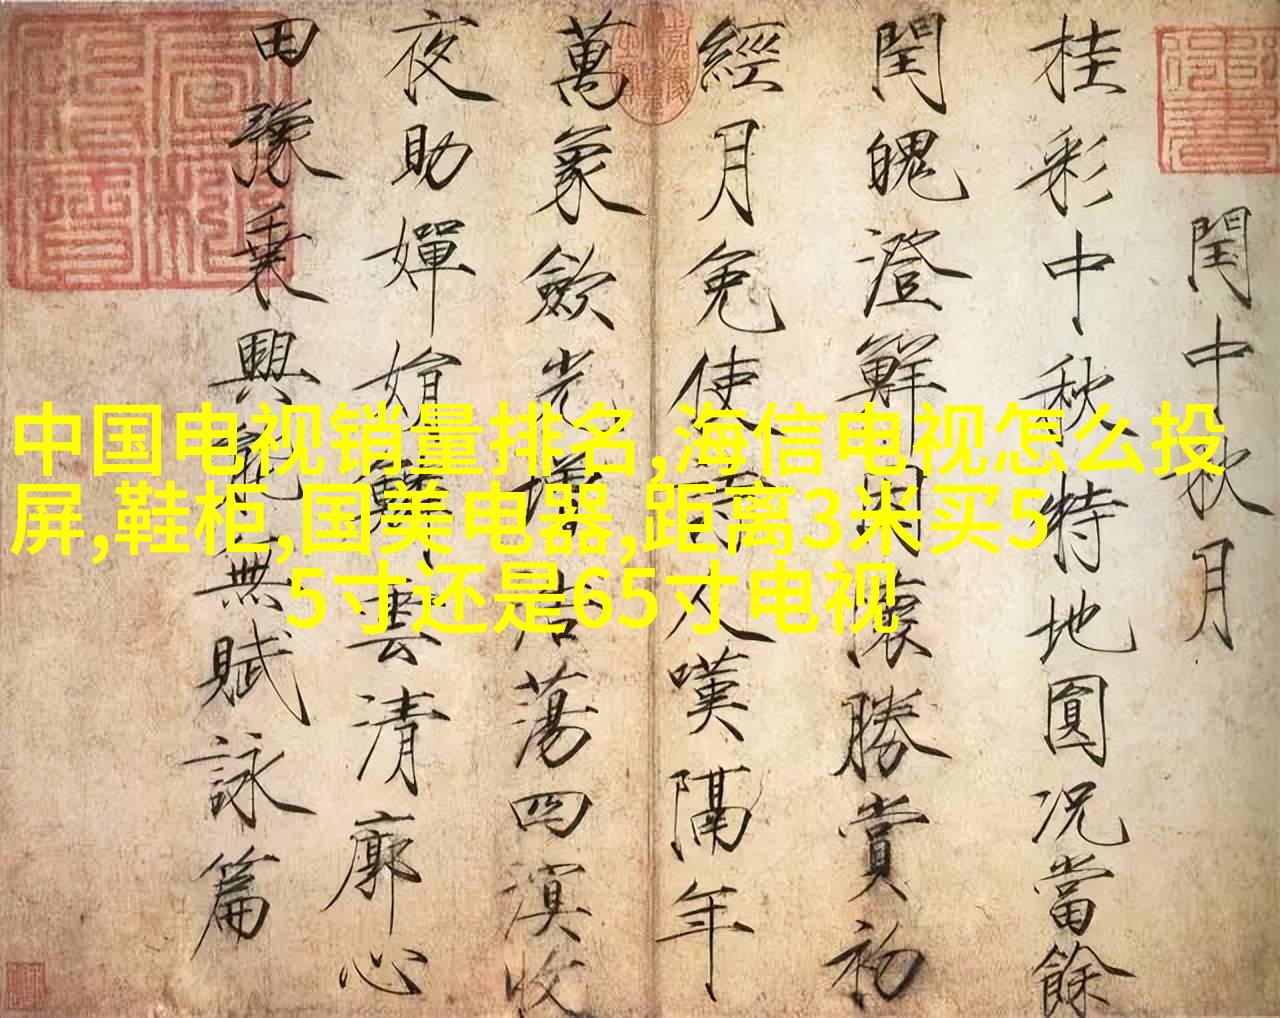 閏中秋月
桂彩中秋特地圓況當餘
閏魄澄鮮因懷勝賞初
經月免使人嘆隔年
萬象歛光增浩蕩四溟收
夜助嬋娟雲清廓心
田豫乗興能無賦詠篇
中国电视销量排名,海信电视怎么投
屏,鞋柜,国美电器,距离3米买5
5寸还是65寸电视